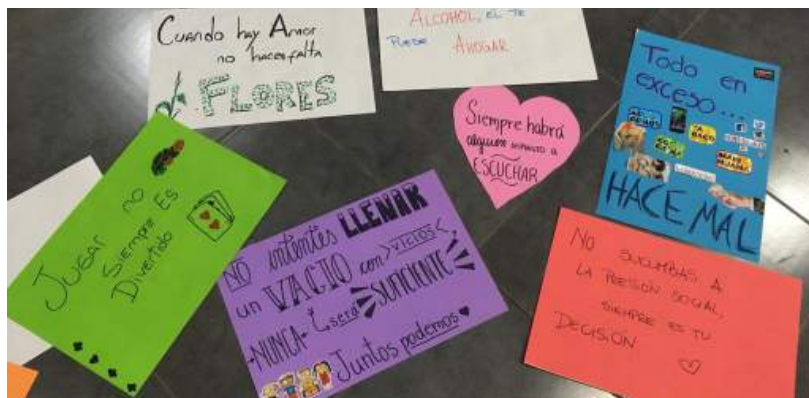 Cuando hay Amor
no hacen falta
FLORES
ALCOHOL, EL TE
PUEDE AHOGAR
Siempre habrá
alguien dispuesto a
ESCUCHAR
Todo en
exceso...
HACE MAL
JUGAR NO
SIEMPRE ES
DIVERTIDO
NO intentes LLENAR
un VACIO con >VICIOS<
-NUNCA- será SUFICIENTE
Juntos podemos
NO SUCUMBAS A
LA PRESIÓN SOCIAL,
SIEMPRE ES TU
DECISIÓN